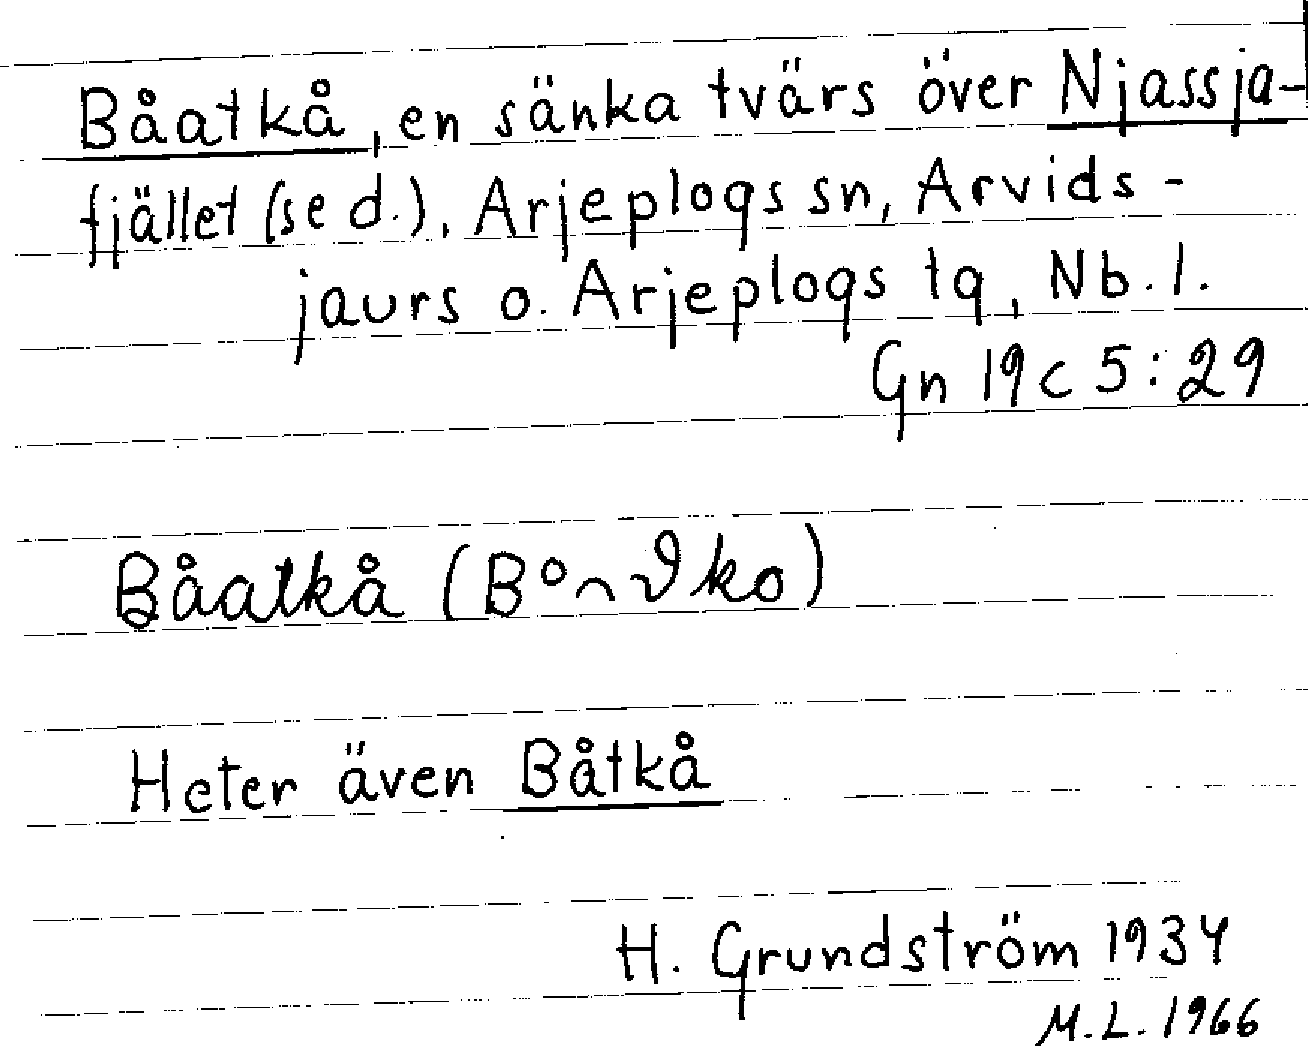 Båatkå, en sänka tvärs över Njassja-
fjället (se d.), Arjeplogs sn, Arvids-
jaurs o. Arjeplogs tg, Nb. l.
Gn 19c 5:29
Båatkå (
Heter även Båtkå
H. Grundström 1934
M.L. 1966